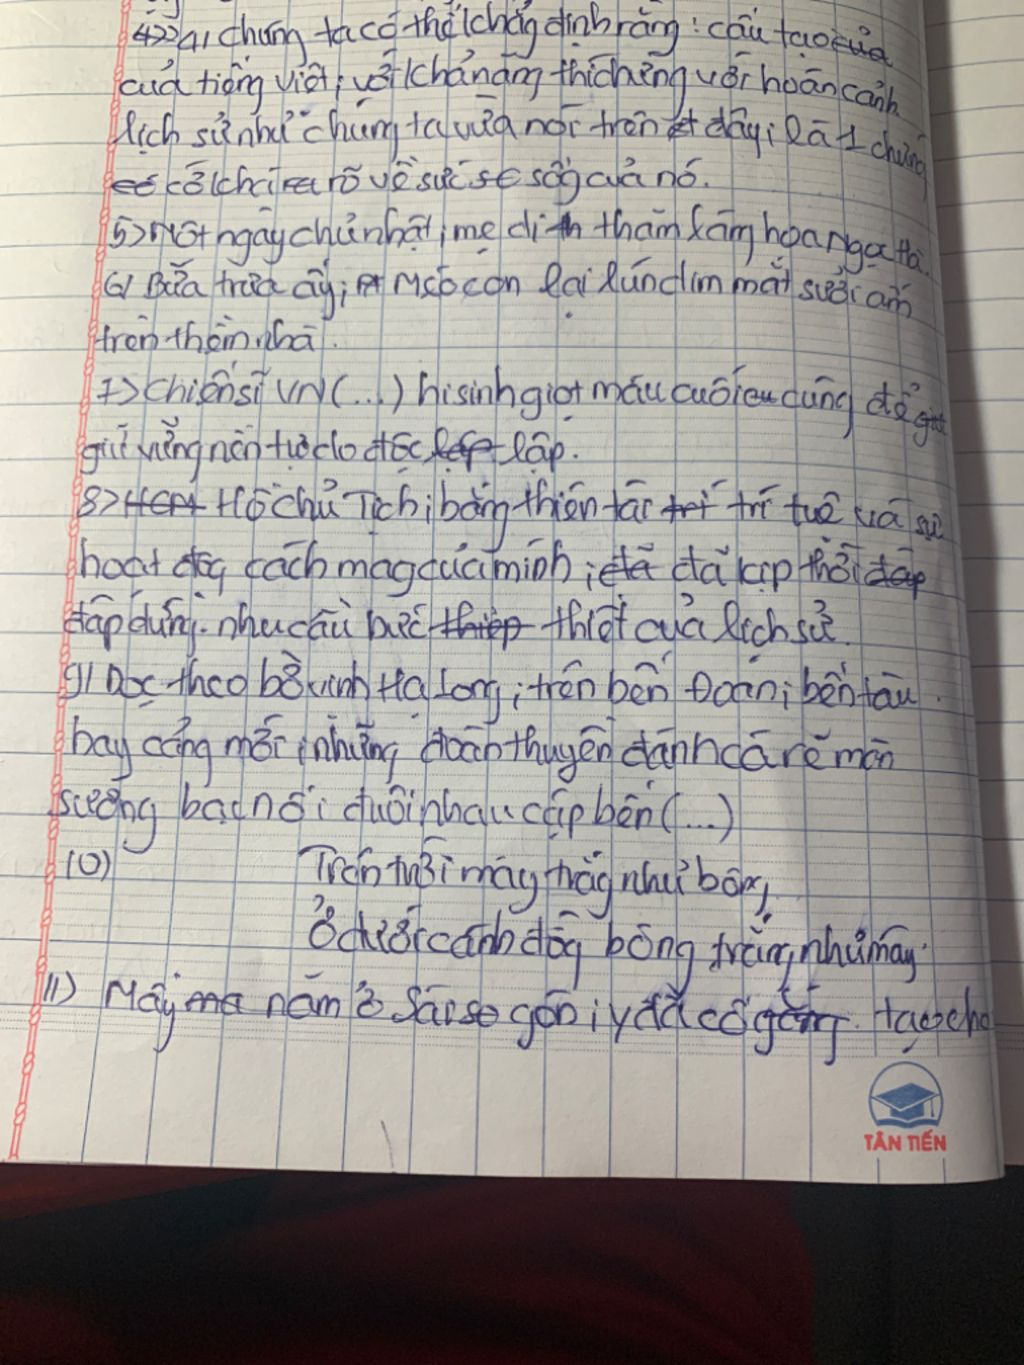 4>>a, chúng ta có thể khẳg định rằng: cấu tạo của
của tiếng việt, với khả năng thích ứng với hoàn cảnh
lịch sử như chúng ta vừa nói trên đây, là 1 chứng
cớ khá rõ về sức sốg của nó.
5> Một ngày chủ nhật, mẹ đi thăm làng hoa Ngọc Hà.
6/ Bữa trưa ấy, Mướp con lại lim dim mắt sưởi ấm
trên thềm nhà.
7> Chiến sĩ VN (...) hi sinh giọt máu cuối cùng để
giữ vững nền tự do độc lập.
8> HCM Hồ Chủ Tịch, bằng thiên tài trí tuệ và sự
hoạt độg cách mạg của mình, đã kịp thời đáp
đáp đứng. nhu cầu bức thiết của lịch sử.
9/ Dọc theo bờ vịnh Hạ Long, trên bến Đoan, bến tàu
hay cảng mới, những đoàn thuyền đánh cá rẽ màn
sương bạc nối đuôi nhau cập bến (...)
10) Trên trời mây trắg như bông,
Ở dưới cánh đồg bông trắng như mây.
11) Mấy năm ở Sài Gòn, y đã cố gắng tạo cho
TÂN TIẾN